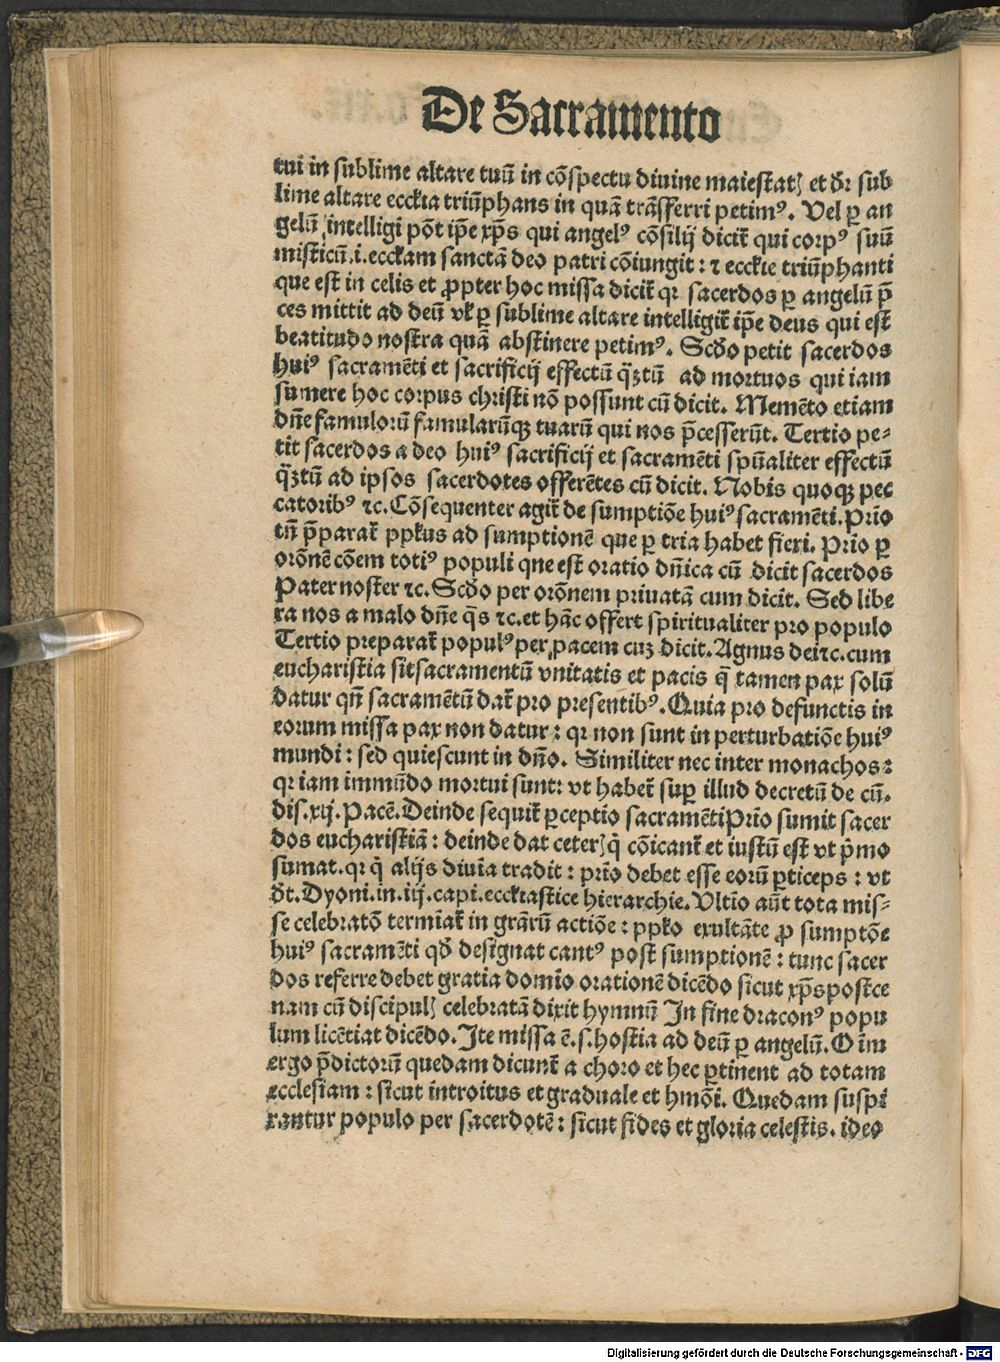 De Sacramento
tui in sublime altare tuū in cōspectu diuine maiestatꝭ et dr̄: sub
lime altare eccl̄ia triūphans in quā trāsferri petimꝰ. Vel ꝑ an
gelū intelligi pōt ip̄e xp̄s qui angelꝰ cōsilij dicit̄ qui corpꝰ suū
misticū.i.eccl̄am sanctā deo patri cōiungit: ⁊ eccl̄ie triūphanti
que est in celis et ꝓpter hoc missa dicit̄ qꝛ sacerdos ꝑ angelū p̄
ces mittit ad deū vl̄ ꝑ sublime altare intelligit̄ ip̄e deus qui est
beatitudo nostra quā abstinere petimꝰ. Scd̄o petit sacerdos
huiꝰ sacramēti et sacrificij effectū q̄ꝫtū ad mortuos qui iam
sumere hoc corpus christi nō possunt cū dicit. Memēto etiam
dn̄e famulorū famularūqꝫ tuarū qui nos p̄cesserūt. Tertio pe-
tit sacerdos a deo huiꝰ sacrificij et sacramēti spūaliter effectū
q̄ꝫtū ad ipsos sacerdotes offerētes cū dicit. Nobis quoqꝫ pec
catoribꝰ ⁊c. Cōsequenter agit̄ de sumptiōe huiꝰ sacramēti. Prīo
tn̄ p̄parat̄ ppl̄us ad sumptionē que ꝑ tria habet fieri. Prīo ꝑ
orōnē cōem totiꝰ populi que est oratio dn̄ica cū dicit sacerdos
Pater noster ⁊c. Scd̄o per orōnem priuatā cum dicit. Sed libe
ra nos a malo dn̄e q̄s ⁊c. et hāc offert spiritualiter pro populo
Tertio preparat̄ populꝰ per pacem cuꝫ dicit. Agnus dei ⁊c. cum
eucharistia sit sacramentū vnitatis et pacis q̄ tamen pax solū
datur qn̄ sacramētū dat̄ pro presentibꝰ. Quia pro defunctis in
eorum missa pax non datur: qꝛ non sunt in perturbatiōe huiꝰ
mundi: sed quiescunt in dn̄o. Similiter nec inter monachos:
qꝛ iam immūdo mortui sunt: vt habet̄ suꝑ illud decretū de cū.
dis.xij. Pacē. Deinde sequit̄ ꝑceptio sacramēti Prīo sumit sacer
dos eucharistiā: deinde dat ceterꝭ q̇ cōicant̄ et iustū est vt p̄mo
sumat. qꝛ q̇ alijs diuīa tradit: prīo debet esse eorū ꝑticeps: vt
dt̄. Dyoni.in.iij.capi.eccl̄iastice hierarchie. Vltīo aūt tota mis-
se celebratō termīat̄ in grāꝝ actiōe: ppl̄o exultāte ꝓ sumptōe
huiꝰ sacramēti qd̄ designat cantꝰ post sumptionē: tunc sacer
dos referre debet gratia domīo orationē dicēdo sicut xp̄s post ce
nam cū discipulꝭ celebratā dixit hymnū In fine draconꝰ popu
lum licētiat dicēdo. Ite missa ē.s.hostia ad deū ꝑ angelū. O īm
ergo p̄dictorū quedam dicunt̄ a choro et hec ꝑtinent ad totam
ecclesiam: sicut introitus et graduale et hmōi. Quedam suspi
rantur populo per sacerdotē: sicut fides et gloria celestis. ideo
Digitalisierung gefördert durch die Deutsche Forschungsgemeinschaft - DFG